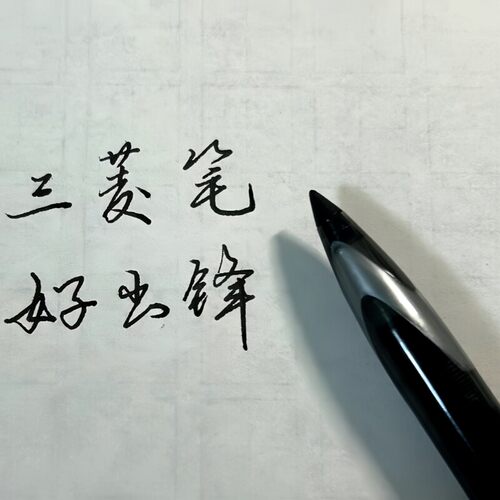 三菱笔
好出锋